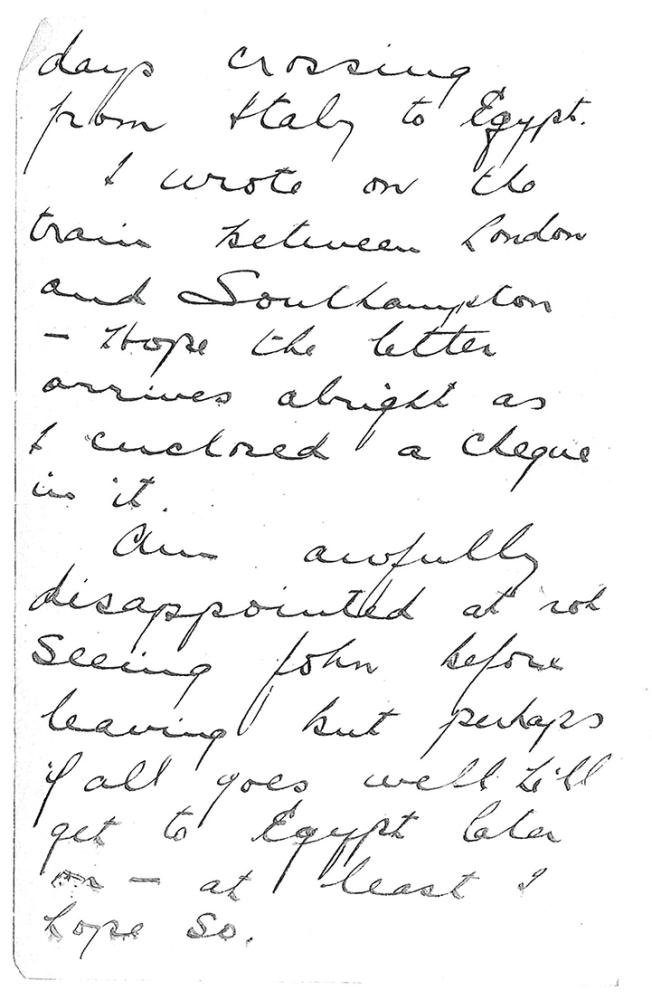 days crossing
from Italy to Egypt.
I wrote on the
train between London
and Southampton
- Hope the letter
arrives alright as
I enclosed a cheque
in it.
Am awfully
disappointed at not
seeing John before
leaving but perhaps
if all goes well he'll
get to Egypt later
on - at least I
hope so.